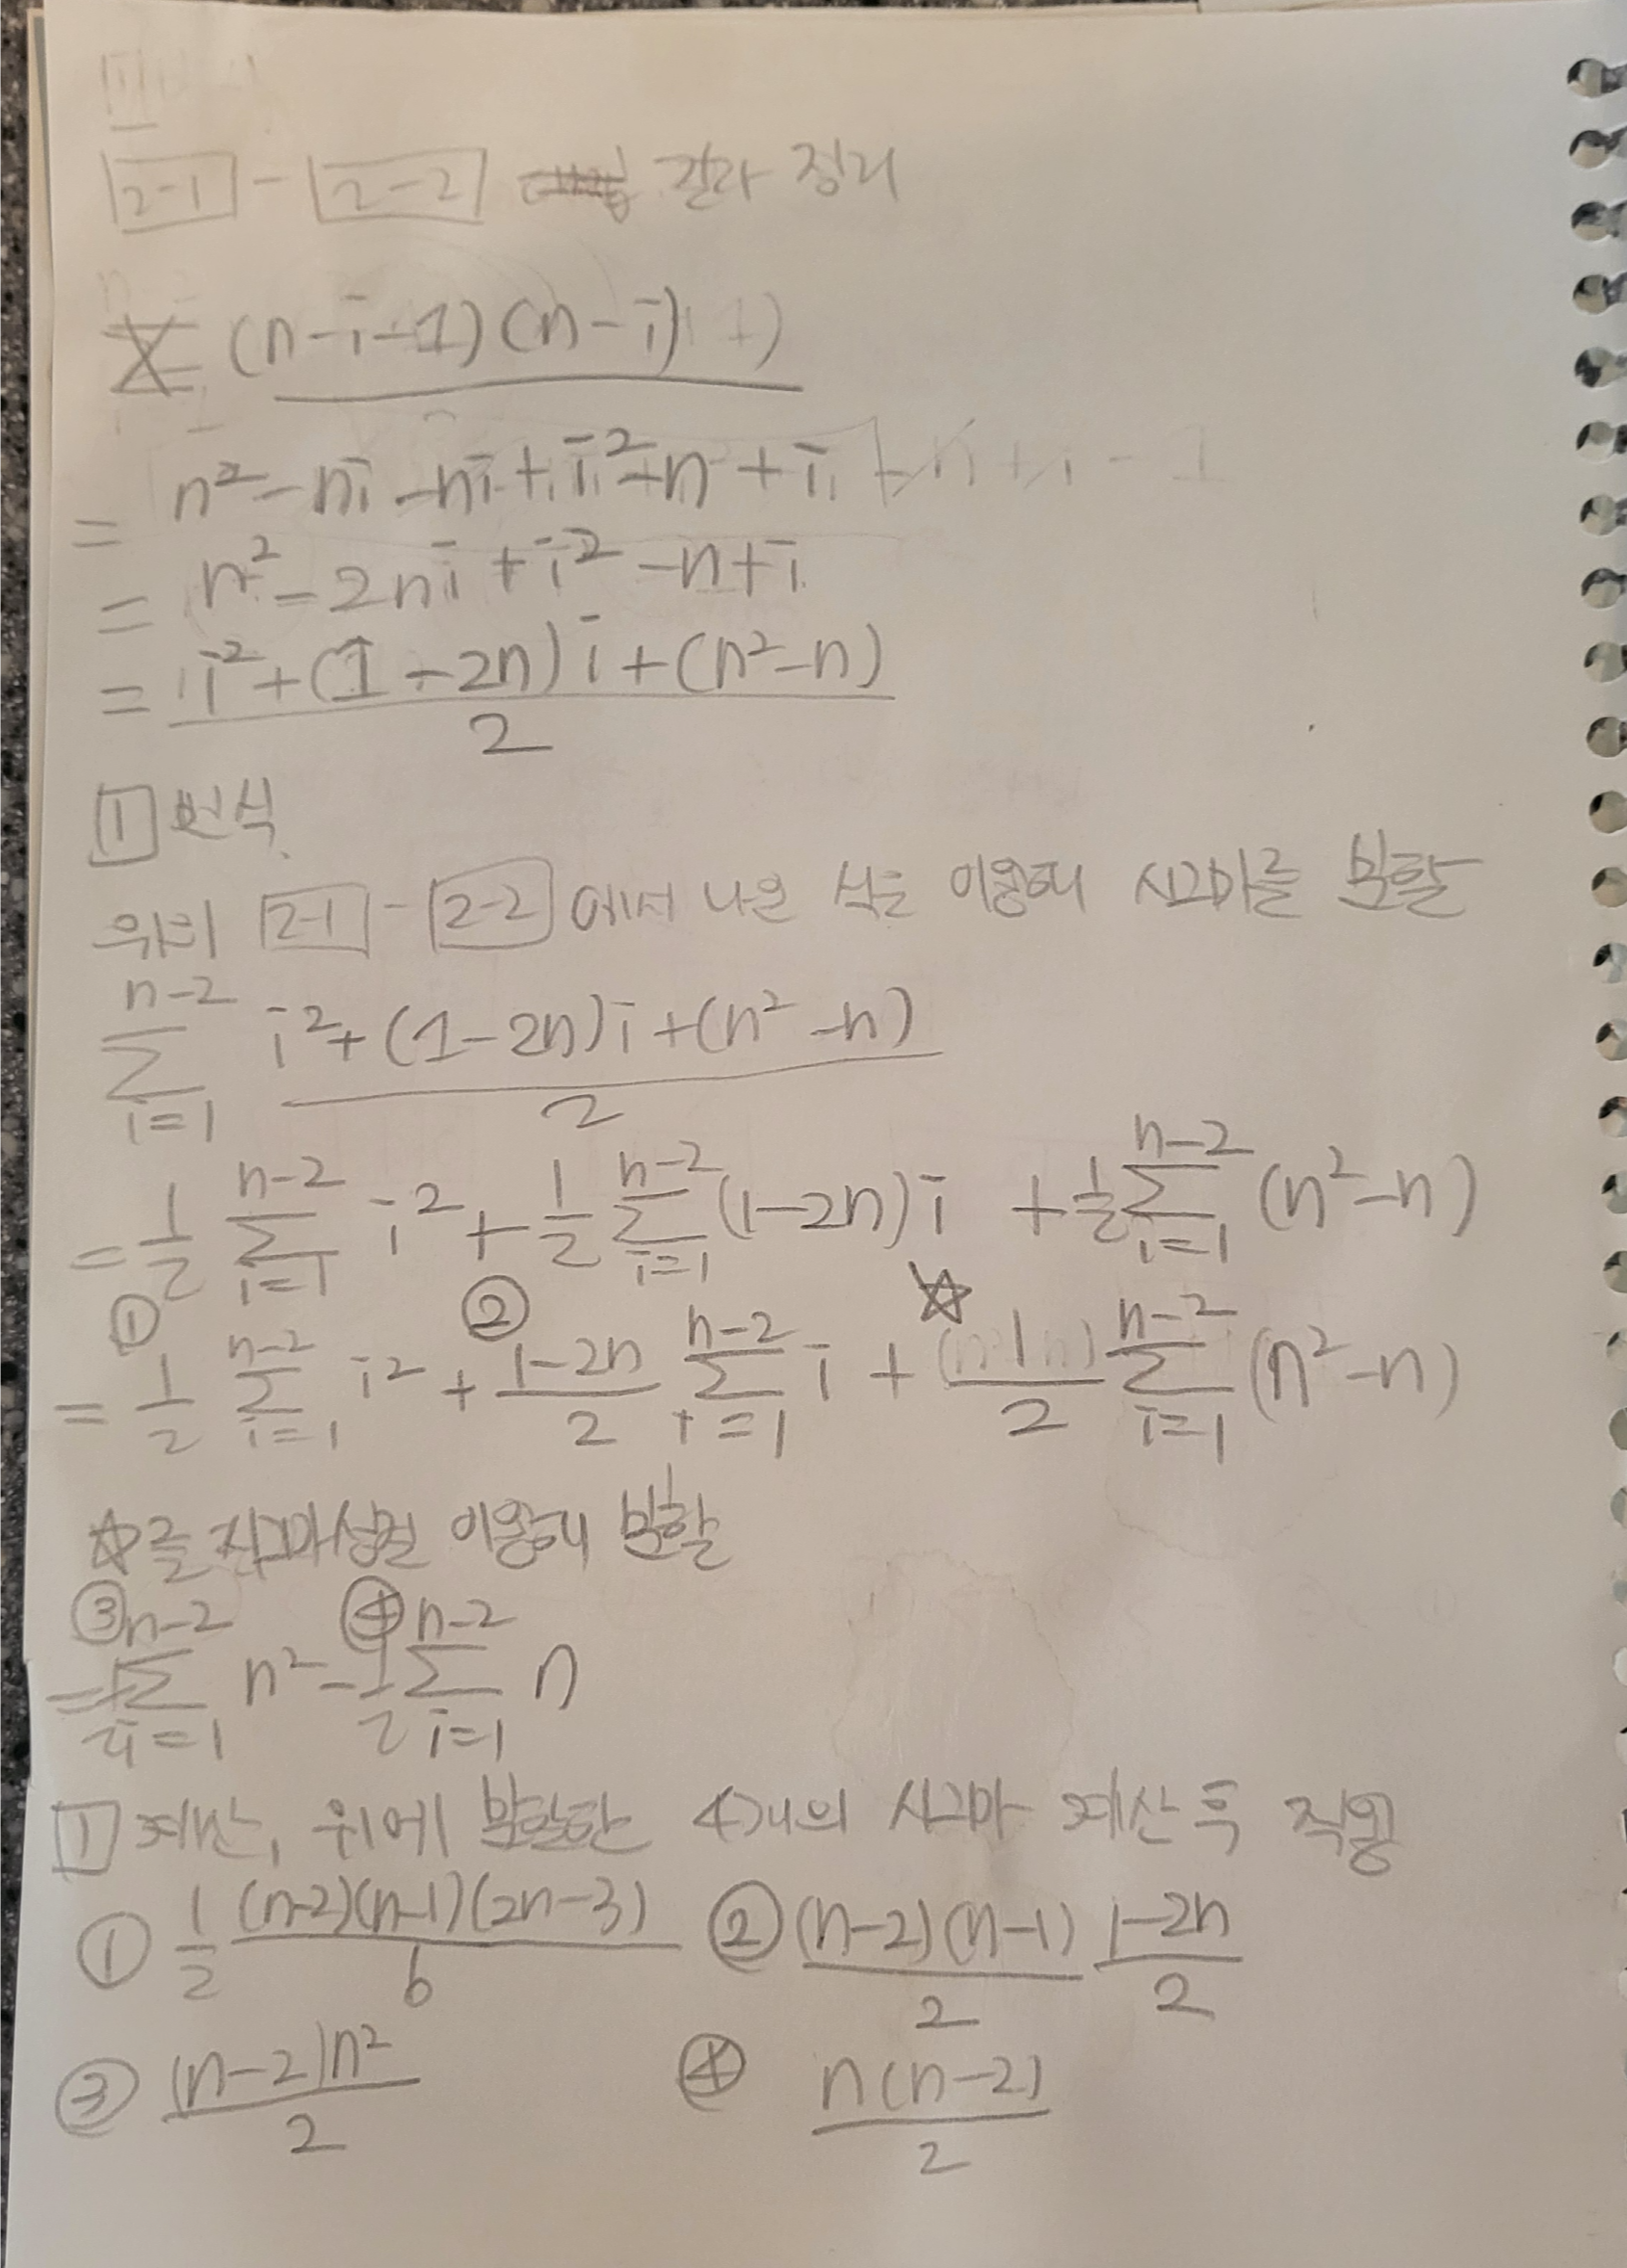 2-1 - 2-2 결과 정리
(n-i-1)(n-i)
= n²-ni-ni+i²-n+i
= n²-2ni+i²-n+i
= i²+(1-2n)i+(n²-n) / 2
1 번식
위의 2-1 - 2-2 에서 나온 식을 이용해 시그마를 분할
∑_{i=1}^{n-2} (i²+(1-2n)i+(n²-n)) / 2
= 1/2 ∑_{i=1}^{n-2} i² + 1/2 ∑_{i=1}^{n-2} (1-2n)i + 1/2 ∑_{i=1}^{n-2} (n²-n)
① ② ☆
= 1/2 ∑_{i=1}^{n-2} i² + (1-2n)/2 ∑_{i=1}^{n-2} i + 1/2 ∑_{i=1}^{n-2} (n²-n)
☆를 시그마성질 이용해 분할
③ ④
= 1/2 ∑_{i=1}^{n-2} n² - 1/2 ∑_{i=1}^{n-2} n
1 계산, 위에 분할한 4개의 시그마 계산 후 적용
① 1/2 (n-2)(n-1)(2n-3)/6 ② (n-2)(n-1)/2 (1-2n)/2
③ (n-2)n²/2 ④ n(n-2)/2